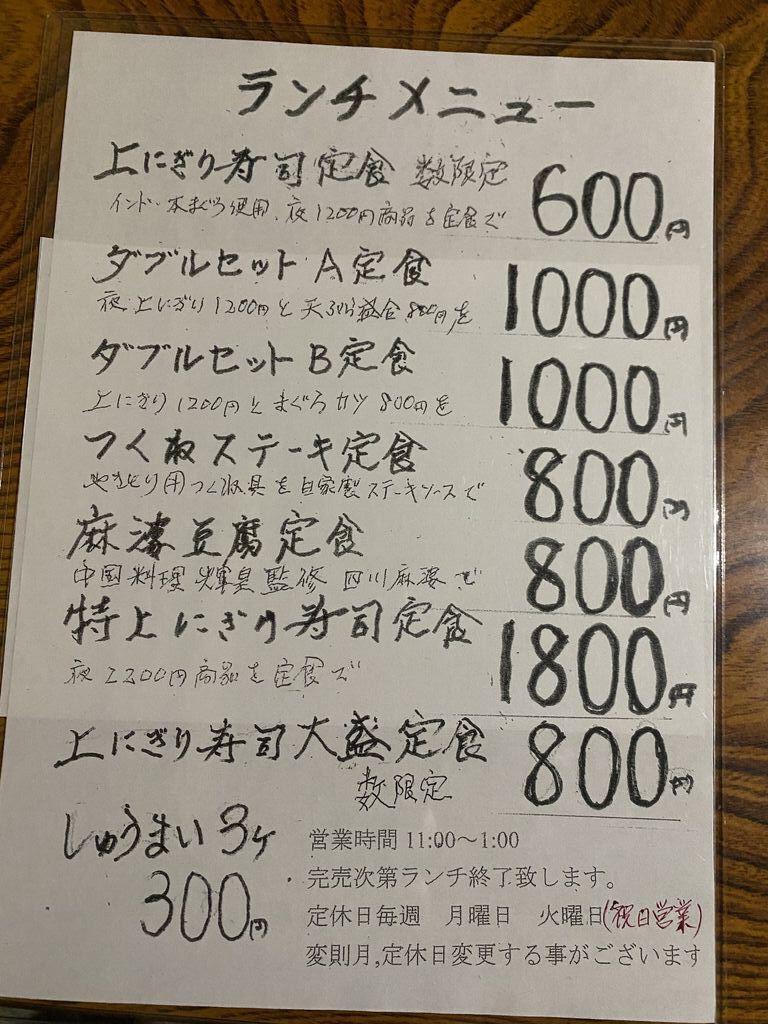 ランチメニュー
上にぎり寿司定食 数限定 600円
インド・本まぐろ使用、夜1200円商品を定食で
ダブルセットA定食 1000円
夜上にぎり1200円と天ぷら盛合800円を
ダブルセットB定食 1000円
上にぎり1200円とまぐろカツ800円を
つくねステーキ定食 800円
やきとり用つくね具を自家製ステーキソースで
麻婆豆腐定食 800円
中国料理 輝臭監修 四川麻婆で
特上にぎり寿司定食 1800円
夜2300円商品を定食で
上にぎり寿司大盛定食 800円
数限定
しゅうまい3ケ
300円
営業時間 11:00～1:00
・完売次第ランチ終了致します。
定休日毎週 月曜日 火曜日(祝日営業)
変則月,定休日変更する事がございます